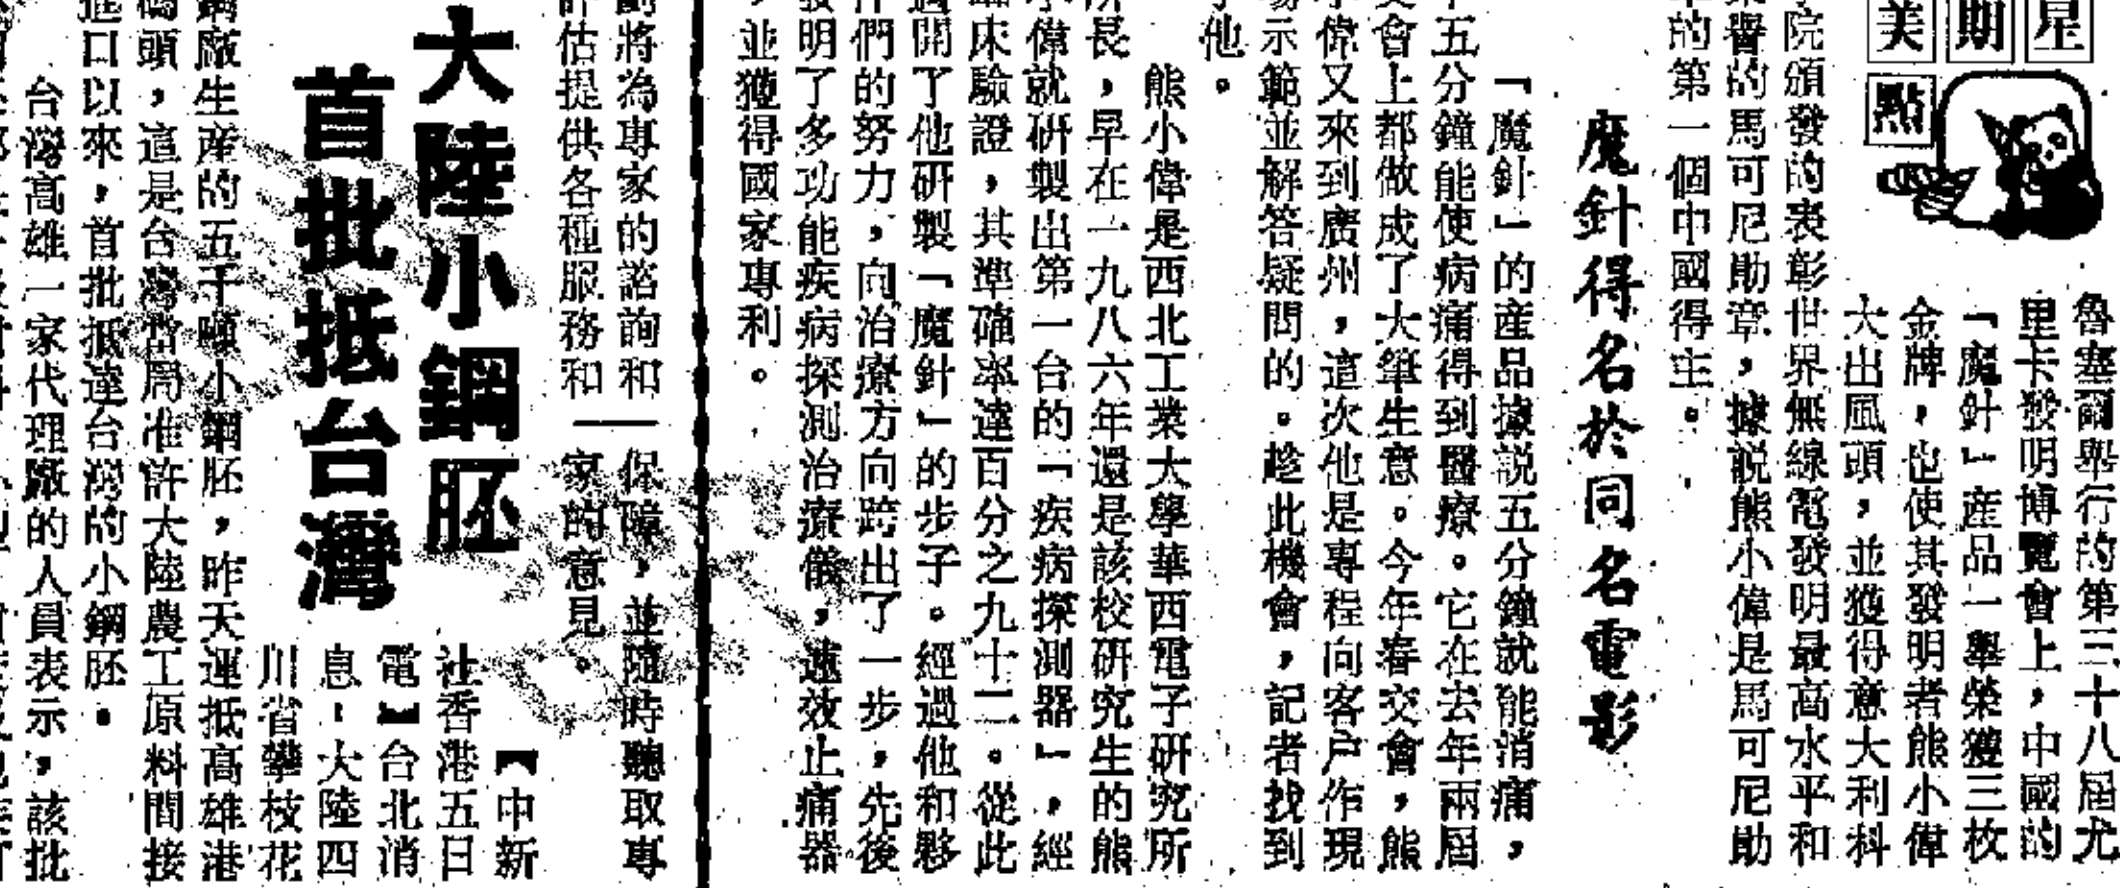 星期美點
魯塞爾舉行的第三十八屆尤
里卡發明博覽會上，中國的
「魔針」產品一舉榮獲三枚
金牌，也使其發明者熊小偉
大出風頭，並獲得意大利科
院頒發的表彰世界無線電發明最高水平和
榮譽的馬可尼勛章，據説熊小偉是馬可尼勛
的第一個中國得主。
魔針得名於同名電影
「魔針」的產品據説五分鐘就能消痛，
十五分鐘能使病痛得到醫療。它在去年兩屆
交會上都做成了大筆生意。今年春交會，熊
小偉又來到廣州，這次他是專程向客户作現
場示範並解答疑問的。趁此機會，記者找到
了他。
熊小偉是西北工業大學華西電子研究所
所長，早在一九八六年還是該校研究生的熊
小偉就研製出第一台的「疾病探測器」，經
臨床驗證，其準確率達百分之九十二。從此
開了他研製「魔針」的步子。經過他和夥
伴們的努力，向治療方向跨出了一步，先後
發明了多功能疾病探測治療儀，速效止痛器
，並獲得國家專利。
將為專家的諮詢和
評估提供各種服務和
保障，並隨時聽取專
家的意見。
大陸小鋼胚
首批抵台灣
【中新
社香港五日
電】台北消
息：大陸四
川省攀枝花
鋼廠生產的五千噸小鋼胚，昨天運抵高雄港
碼頭，這是台灣當局准許大陸農工原料間接
進口以來，首批抵達台灣的小鋼胚。
台灣高雄一家代理廠的人員表示，該批